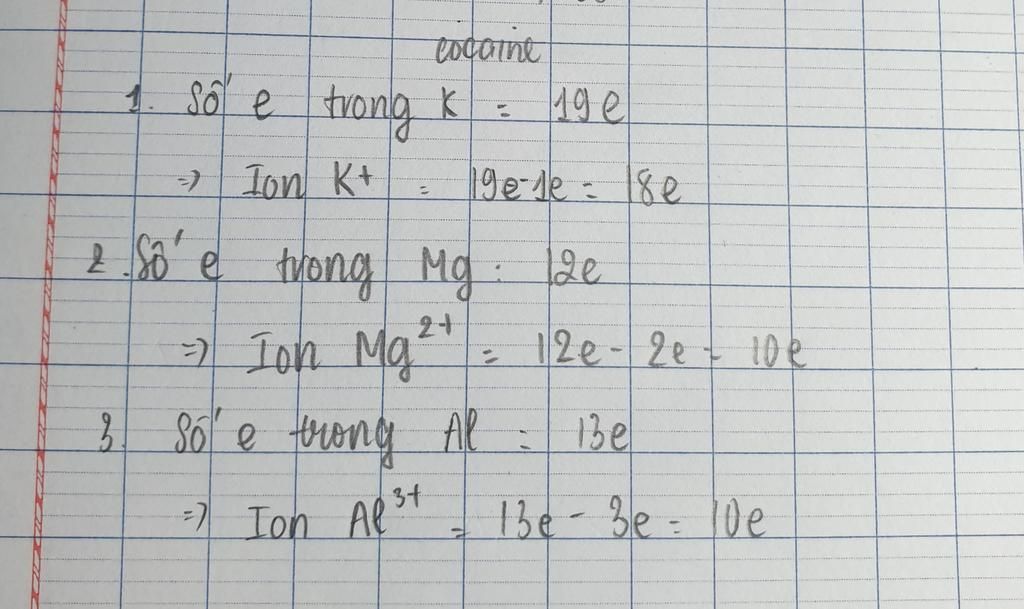 cocaine
1. Số e trong K = 19e
=> Ion K+ = 19e-1e = 18e
2. Số e trong Mg : 12e
=> Ion Mg²⁺ = 12e - 2e - 10e
3. Số e trong Al = 13e
=> Ion Al³⁺ = 13e - 3e = 10e